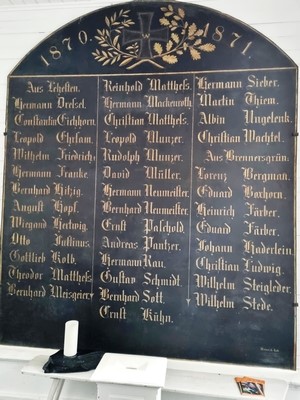 1870. 1871.
W
Aus Lehesten.
Hermann Drechsel.
Constantin Eichhorn.
Leopold Ehrsam.
Wilhelm Friedrich.
Hermann Franke.
Bernhard Hitzig.
August Hopf.
Wiegand Hertwig.
Otto
Gottlieb Kolb.
Theodor Matthefs.
Bernhard Meisgeier.
Reinhold Matthefs.
Hermann Mackenroth.
Christian Matthefs.
Leopold Munzer.
Rudolph Munzer.
David Müller.
Hermann Neumeister.
Bernhard Neumeister.
Ernst Paschold.
Andreas Pantzer.
Hermann Rau.
Gustav Schmidt.
Bernhard Sott.
Ernst Kühn.
Hermann Sieber.
Martin Thiem.
Albin Ungelenk.
Christian Wachtel.
Aus Brennersgrün:
Lorenz Bergmann.
Eduard Boxhorn.
Heinrich Färber.
Eduard Färber.
Johann Haderlein.
Christian Ludwig.
Wilhelm Steigleder.
Wilhelm Stede.